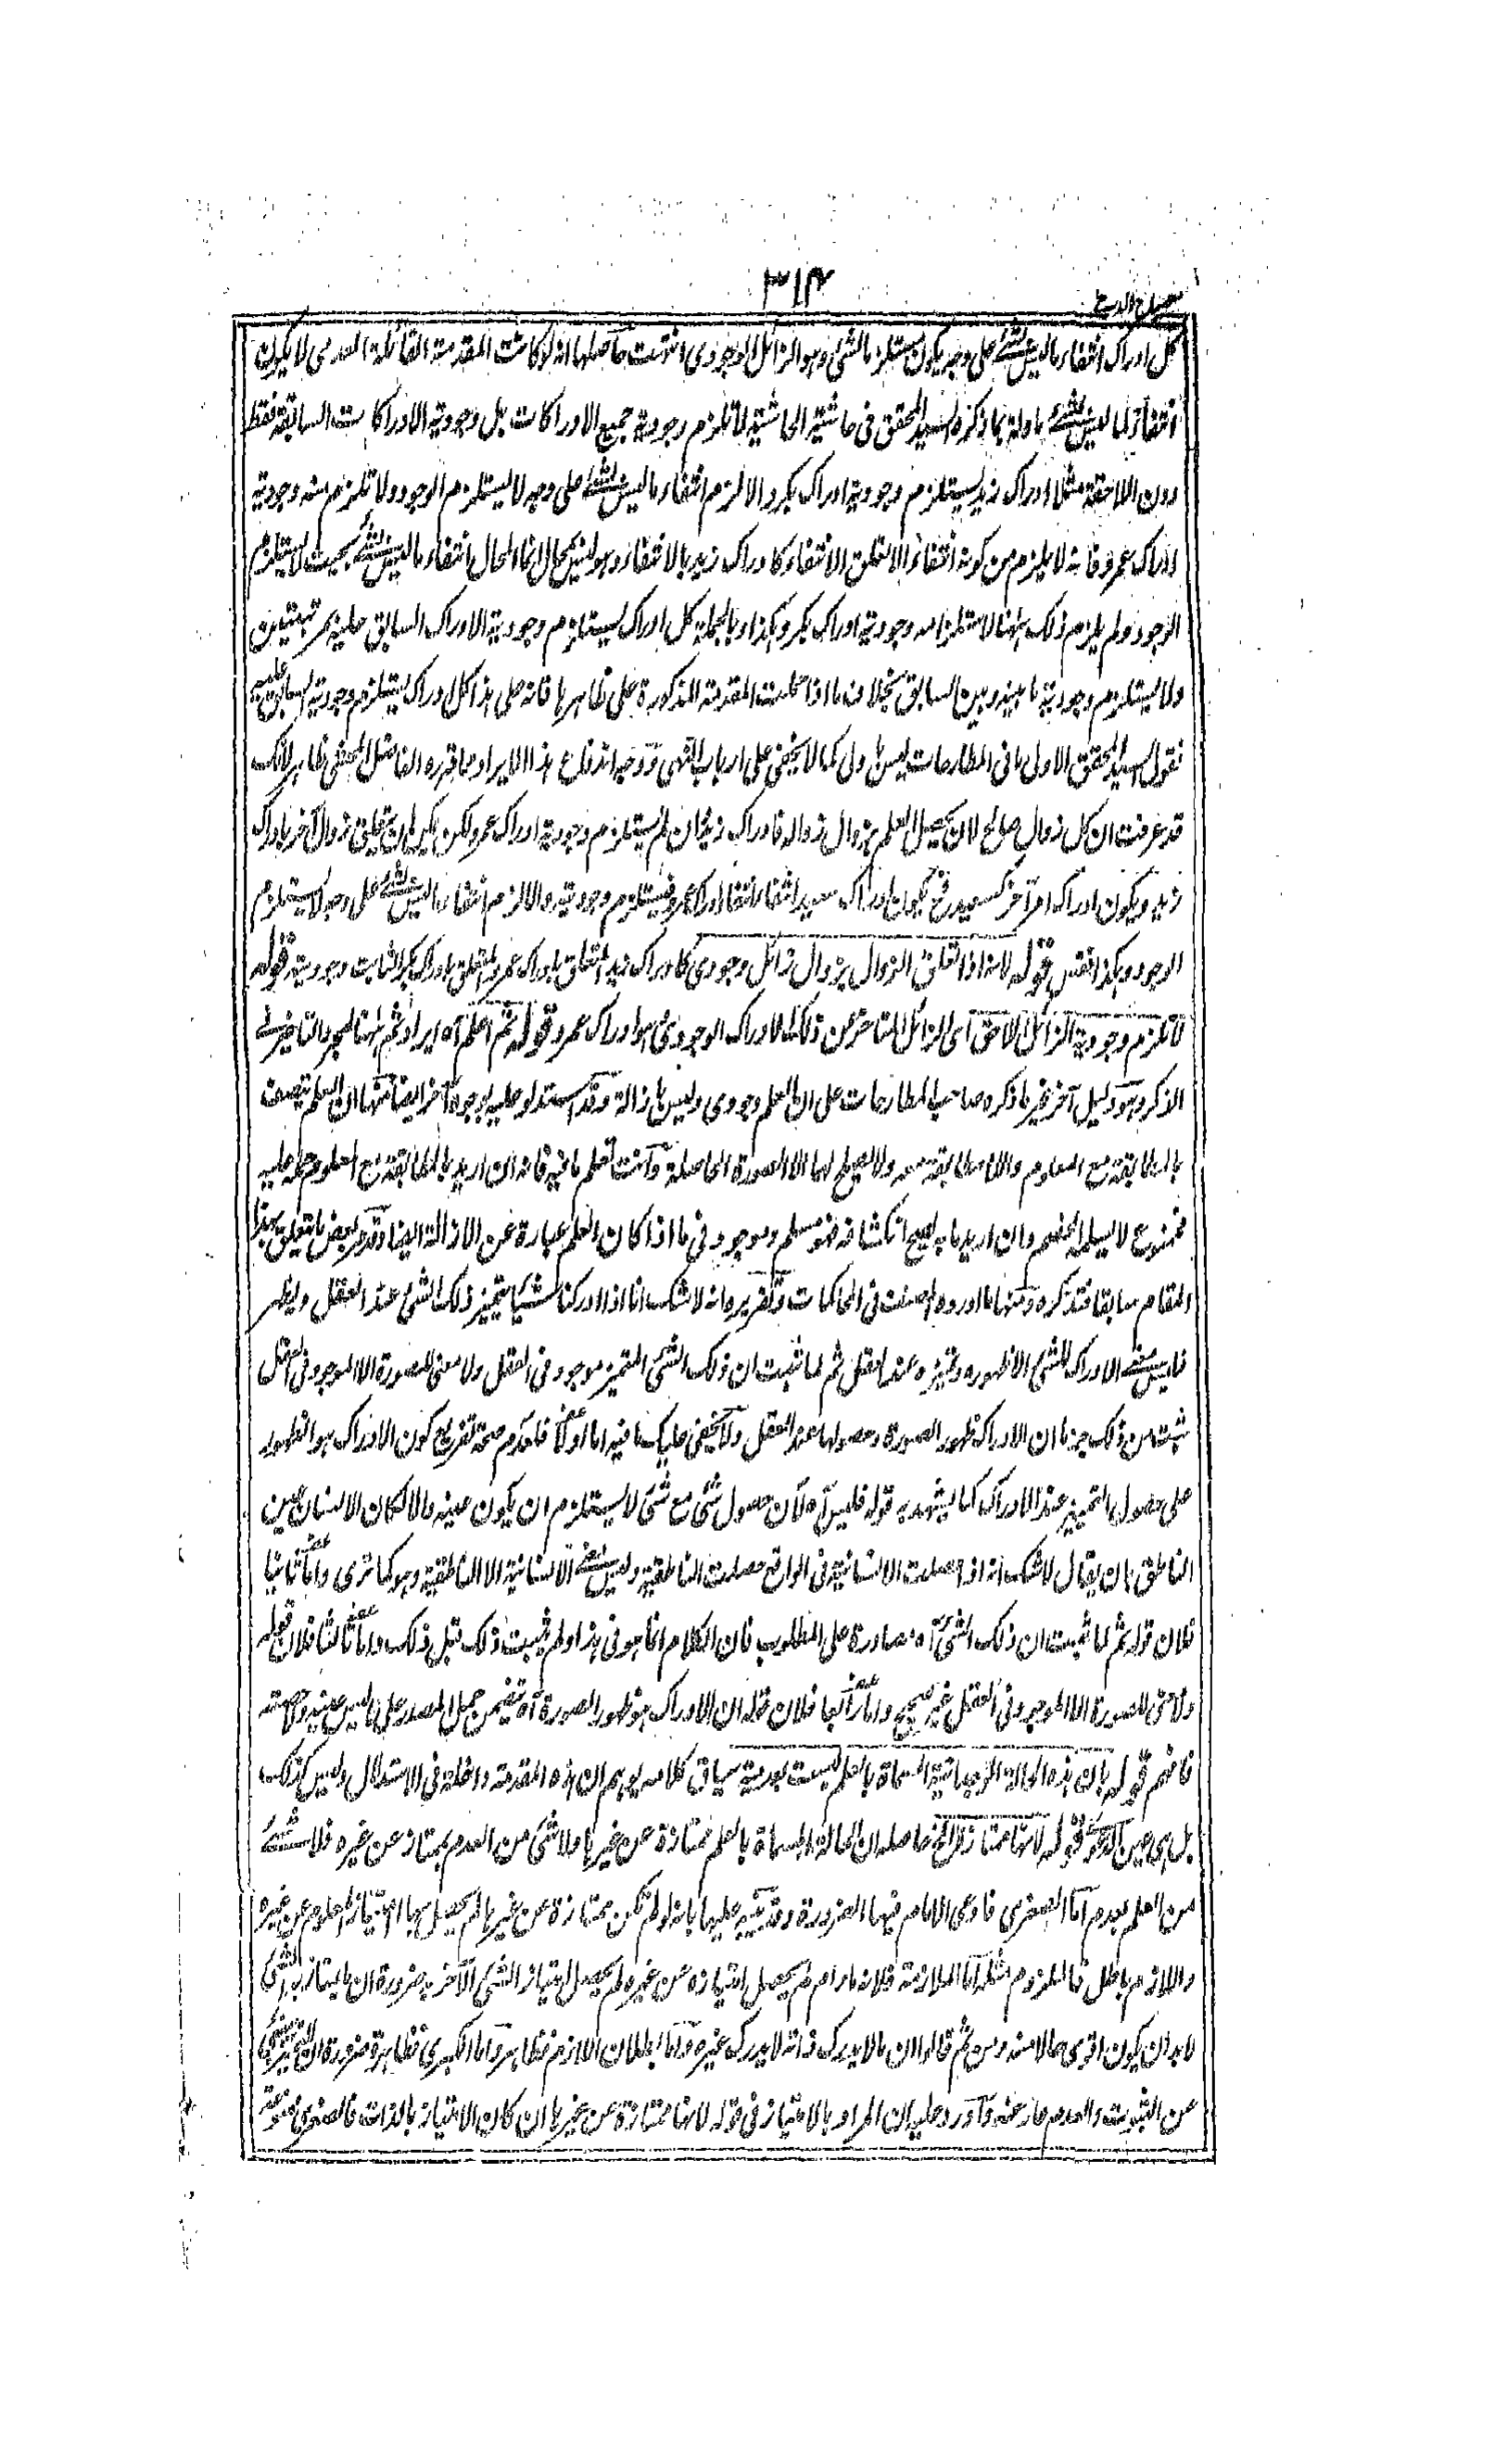 ٣١٢
مصباح الدجى
كل ادراك انتفاء ما ليس بشئ على وجه يكون مستلزما لشئ وهو الزائل الوجودى انتهت حاصلها انه لو كانت المقدمة القائلة العدمى لا يكون
انتفاء لما ليس بشئ ماولة بما ذكره السيد المحقق فى حاشية الحاشية لا تلزم وجودية جميع الادراكات بل وجودية الادراكات السابقة فقط
دون اللاحقة مثلا ادراك زيد يستلزم وجودية ادراك بكر والا لزم انتفاء ما ليس بشئ على وجه لا يستلزم الوجود ولا تلزم منه وجودية
ادراك عمرو فانه لا يلزم من كونه انتفاء الا تعلق الانتفاء كادراك زيد بالانتفاء وهو ليس بمحال انما المحال انتفاء ما ليس بشئ بحيث لا يستلزم
الوجود ولم يلزم ذلك ههنا لاستلزامه وجودية ادراك بكر وهكذا وبالجملة كل ادراك يستلزم وجودية الادراك السابق عليه بمرتبتين
ولا يستلزم وجودية ما بينه وبين السابق بخلاف ما اذا حملت المقدمة المذكورة على ظاهرها فانه على هذا كل ادراك يستلزم وجودية السابق عليه
فقول السيد المحقق الاولى ما فى المطارحات ليس باولى كما لا يخفى على ارباب النهى ووجه اندفاع هذا الايراد بما قرره الفاضل المحشى ظاهر لانك
قد عرفت ان كل زوال صالح لان يحصل العلم بزوال زواله فادراك زيد ان لم يستلزم وجودية ادراك عمرو لكن يمكن ان يتعلق زوال آخر بادراك
زيد ويكون ادراك امر آخر كسعيد فح يكون ادراك سعيد انتفاء انتفاء ادراك عمرو فيستلزم وجوديته والا لزم انتفاء ما ليس بشئ على وجه لا يستلزم
الوجود وهكذا فقس قوله لانه اذا تعلق الزوال بزوال زائل وجودى كادراك زيد المتعلق بادراك عمرو المتعلق بادراك بكر الثابت وجوديته قوله
لا تلزم وجودية الزائل اللاحق اى الزائل المتاخر عن ذلك الادراك الوجودى هو ادراك عمرو قوله ثم اعلم آه ايراد ثم ههنا لمجرد التاخير فى
الذكر وهو دليل آخر غير ما ذكره صاحب المطارحات على ان العلم وجودى وليس بازالة وقد استدلوا عليه بوجوه آخر ايضا منها ان العلم يتصف
بالمطابقة مع المعلوم واللا مطابقة معه ولا يصلح لهما الا الصورة الحاصلة وانت تعلم ما فيه فانه ان اريد بالمطابقة مع المعلوم حمله عليه
فممنوع لا يسلمه الخصم وان اريد ما به يصح انكشافه فهو مسلم وموجود فى ما اذا كان العلم عبارة عن الازالة ايضا وقد مر بعض ما يتعلق بهذا
المقام سابقا فتذكره ومنها ما اورده المصنف فى المحاكمات وتقريره انه لا شك انا اذا ادركنا شيئا يتميز ذلك الشئ عند العقل ويظهر
فليس معنى الادراك للشئ الا ظهوره وتميزه عند العقل ثم لما ثبت ان ذلك الشئ المتميز موجود فى العقل ولا معنى للصورة الا الموجود فى العقل
ثبت من ذلك جزما ان الادراك ظهور الصورة وحصولها عند العقل ولا يخفى عليك ما فيه اما اولا فلعدم صحة تفريع كون الادراك هو الظهور
على حصول التميز عند الادراك كما يشهد به قوله فليس آه لان حصول شئ مع شئ لا يستلزم ان يكون عينه والا لكان الانسان عين
الناطق بان يقال لا شك انه اذا حصلت الانسانية فى الواقع حصلت الناطقية وليس معنى الانسانية الا الناطقية وهو كما ترى واما ثانيا
فلان قوله ثم لما ثبت ان ذلك الشئ آه مصادرة على المطلوب فان الكلام انما هو فى هذا ولم يثبت ذلك قبل ذلك واما ثالثا فلان قوله
ولا معنى للصورة الا الموجود فى العقل غير صحيح واما رابعا فلان قوله ان الادراك هو ظهور الصورة آه تيضمن حمل المصدر على ما ليس عينه وحصته
فافهم قوله بان هذه الحالة الوجدانية المسماة بالعلم ليست بعدمية سياق كلامه يوهم ان هذه المقدمة داخلة فى الاستدلال وليس كذلك
بل هى عين الدعوى قوله لانها ممتازة الخ حاصله ان الحالة المسماة بالعلم ممتازة عن غيرها ولا شئ من العدم بممتاز عن غيره فلا شئ
من العلم بعدم اما الصغرى فادعى الامام فيها الضرورة وقد ينبه عليها بانه لو لم تكن ممتازة عن غيرها لم يحصل بها امتياز المعلوم عن غيره
واللازم باطل فالملزوم مثله اما الملازمة فلانه ما دام لم يحصل امتيازه عن غيره لم يحصل امتياز الشئ الآخر به ضرورة ان ما يمتاز به الشئ
لا بد ان يكون اقوى حالا منه ومن ثم قالوا ان ما لا يدرك ذاته لا يدرك غيره واما بطلان اللازم فظاهر واما الكبرى فظاهرة ضرورة ان التميز ينبئ
عن الثبوت والعدم عار عنه واورد عليه ان المراد بالامتياز فى قوله لانها ممتازة عن غيرها ان كان الامتياز بالذات فالصغرى ممنوعة